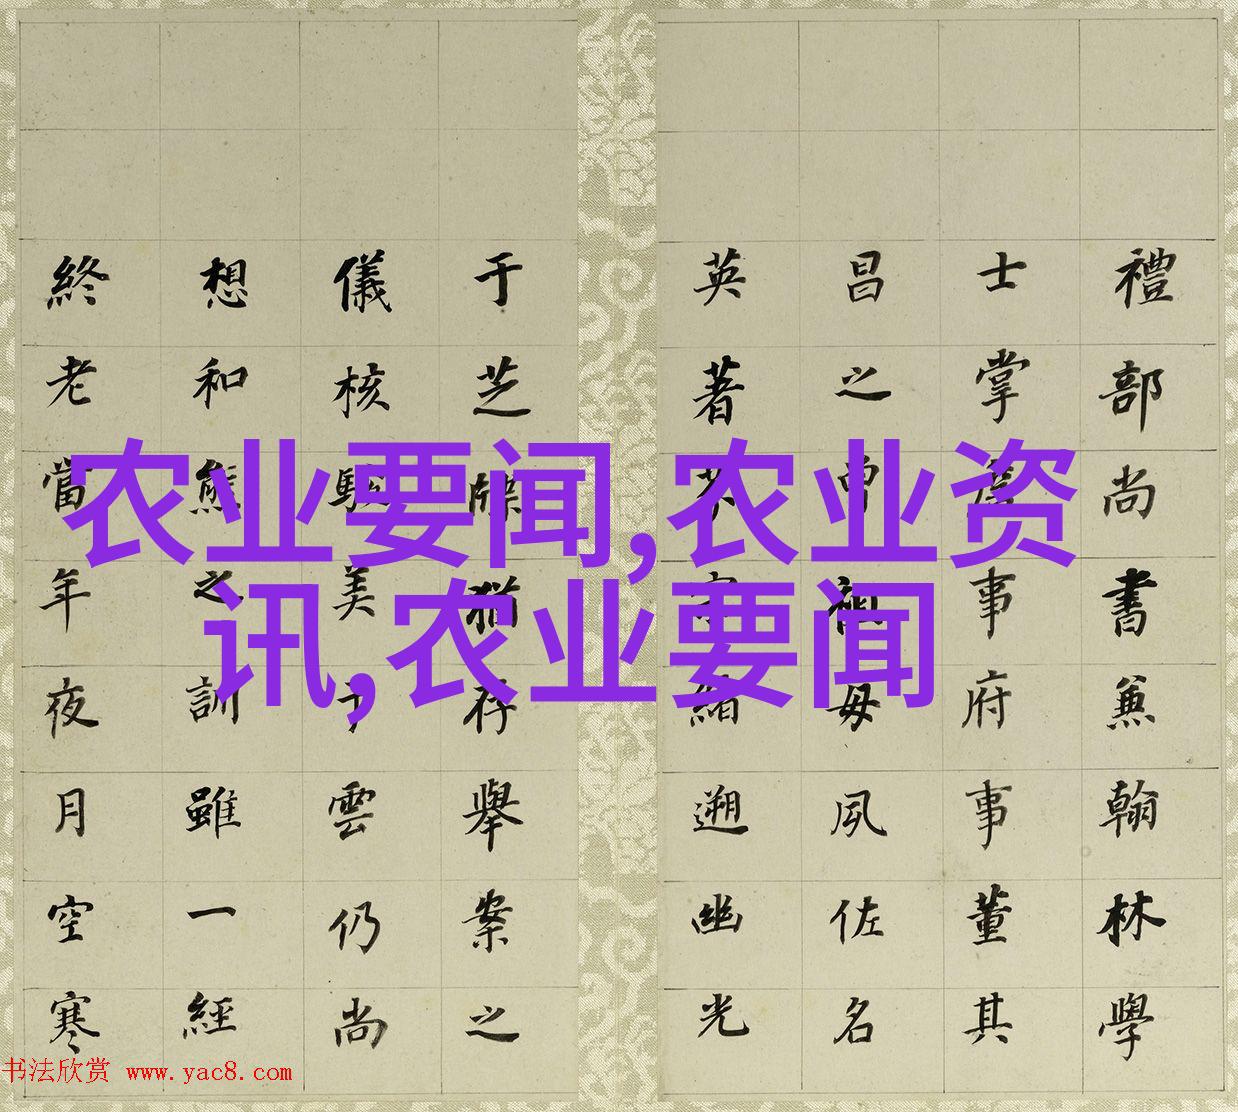 农业要闻,农业资
讯,农业要闻
禮部尚書兼翰林學
士掌詹事府事董其
昌之曾祖母夙佐名
英著緒遡幽光
于芝牒猶存舉案之
儀核美雲仍尚
想和熊之訓雖一經
終老當年夜月空寒
书法欣赏 www.yac8.com